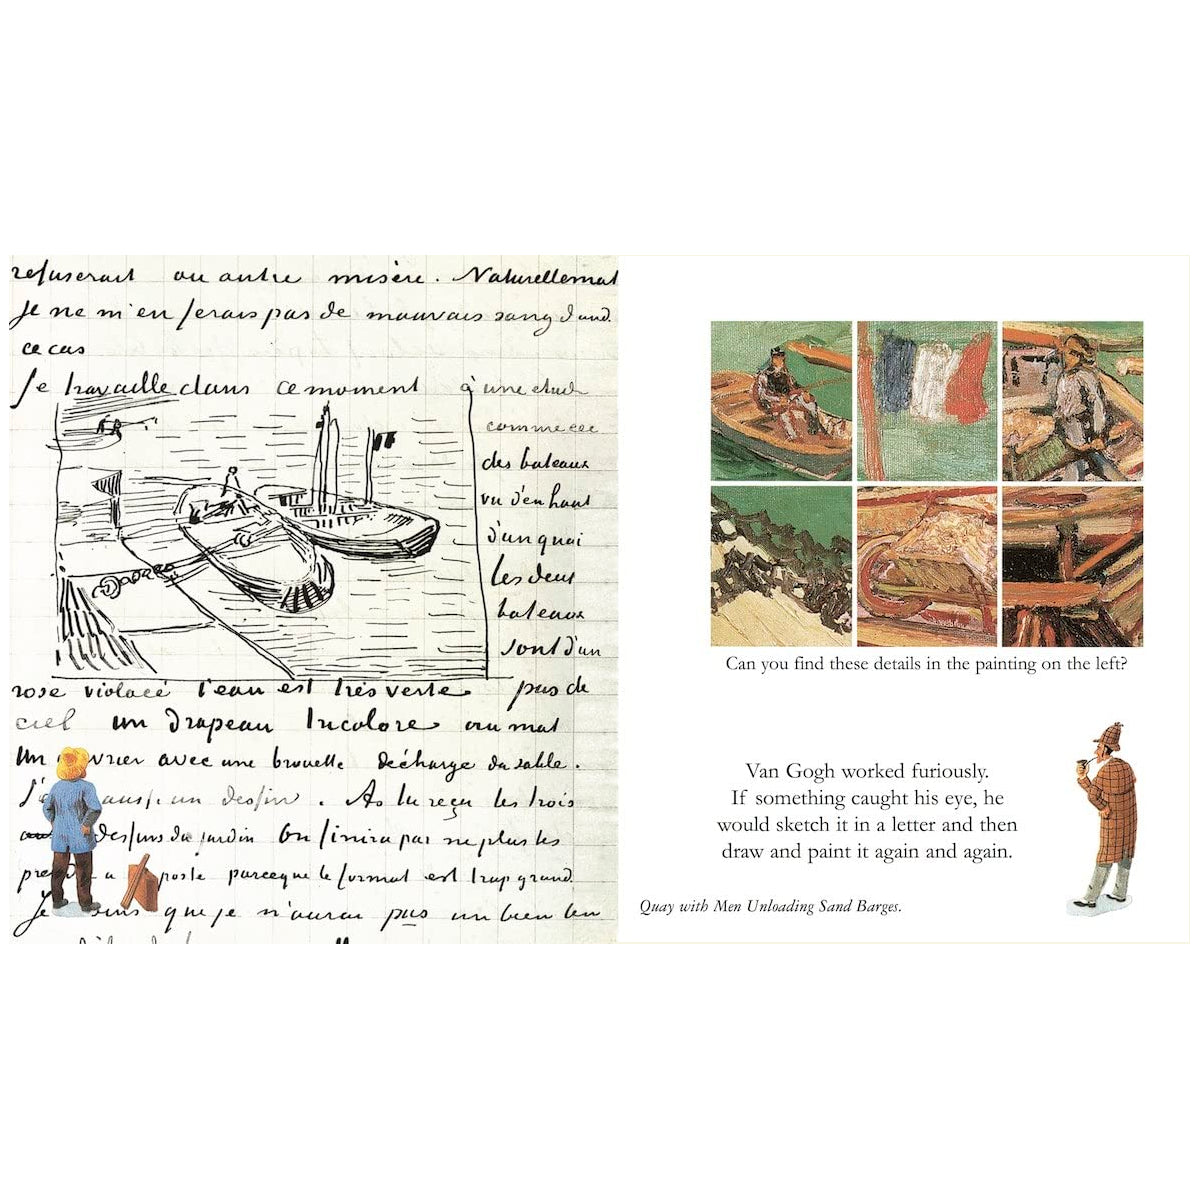 refuserait ou autre misère. Naturellement
je ne m'en ferais pas de mauvais sang dans
ce cas
Je travaille dans ce moment à une etude
comme cec
des bateaux
vu d'en haut
d'un quai
les deux
bateaux
sont d'un
rose violacé l'eau est très verte pas de
ciel un drapeau tricolore au mat
Un vrier avec une brouette décharge du sable.
J'ai aussi un dessin. As tu reçu les trois
dessins du jardin On finira par ne plus les
a poste parceque le format est trop grand.
Je que je n'aurai pas un bien
Can you find these details in the painting on the left?
Van Gogh worked furiously.
If something caught his eye, he
would sketch it in a letter and then
draw and paint it again and again.
Quay with Men Unloading Sand Barges.